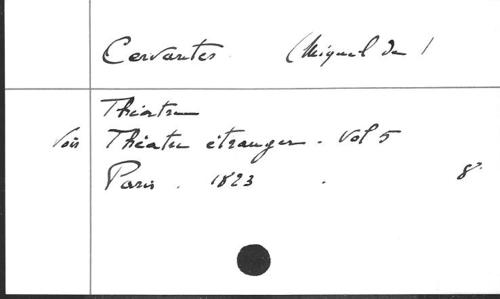 Cervantes (Miguel de)
Théatre
Voir Théatre étranger. Vol 5
Paris. 1823. 8°